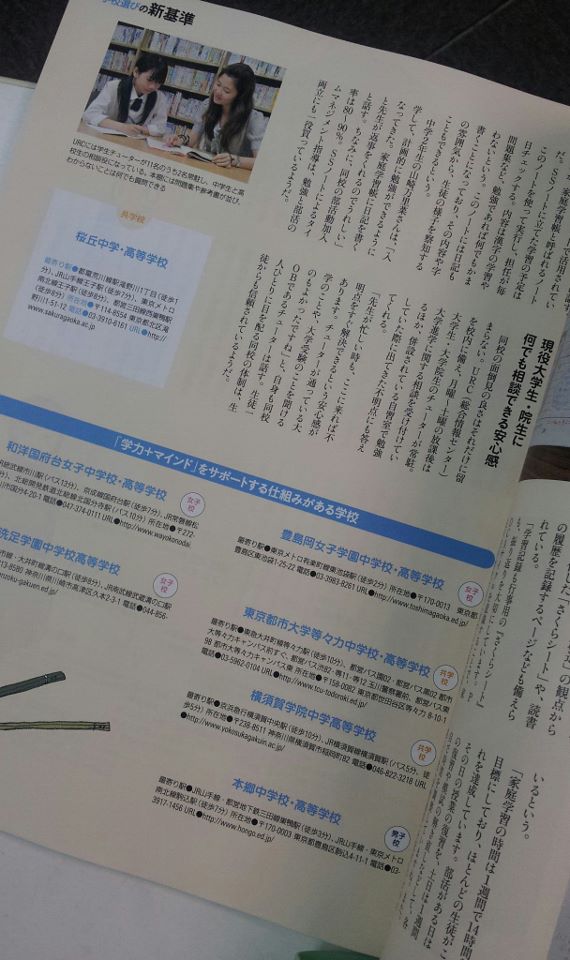 学校選びの新基準
URCには学生チューターが11名のうち2名常駐し、中学生と高
校生の相談役になっている。本棚には問題集や参考書が並び、
わからないことは何でも質問できる
家庭学習帳と呼ばれるノート
だ。SSノートに立てた学習の予定は
このノートを使って実行し、担任が毎
日チェックする。内容は漢字の学習や
問題集など、勉強であれば何でもかま
わないという。このノートには日記も
書くことになっており、その内容や字
の雰囲気から、生徒の様子を察知する
こともできるという。
中学3年生の山崎
学して、計画的な勉強ができるように
なってきた。家庭学習帳に日記を書く
と先生が返事をくれるのでうれしい」
と話す。ちなみに、同校の部活動加入
率は80～90%。SSノートによるタイ
ムマネジメント指導は、勉強と部活の
両立にも一役買っているようだ。
現役大学生・院生に
何でも相談できる安心感
同校の面倒見の良さはそれだけに留
まらない。URC（総合情報センター）
を校内に備え、月曜～土曜の放課後は
大学生・大学院生のチューターが常駐。
大学進学に関する相談を受け付けてい
るほか、併設されている自習室で勉強
していた際に出てきた不明点にも答え
てくれる。
「先生が忙しい時も、ここに来れば不
明点をすぐ解決できるという安心感が
あります。チューターが通っている大
学のことや、大学受験のことを聞ける
のもよかったですね」と、自身も同校
OBであるチューターは話す。生徒一
人ひとりに目を配る同校の体制は、生
徒からも信頼されているようだ。
共学校
桜丘中学・高等学校
最寄り駅●都電荒川線滝野川1丁目（徒歩1
分）、JR山手線王子駅（徒歩7分）、東京メトロ
南北線王子駅（徒歩8分）、都営三田線西巣鴨駅
（徒歩8分） 所在地●〒114-8554 東京都北区滝
野川1-51-12 電話●03-3910-6161 URL●http://
www.sakuragaoka.ac.jp/
「学力+マインド」をサポートする仕組みがある学校
女子校
和洋国府台女子中学校・高等学校
市川駅（バス13分）、京成線国府台駅（徒歩7分）、JR常磐線松
分）、北総開発鉄道北総線北国分各駅（バス10分） 所在地●〒272-
市国分4-20-1 電話●047-374-0111 URL●http://www.wayokonodai
女子校
洗足学園中学校高等学校
市線・大井町線溝の口駅（徒歩8分）、JR南武線武蔵溝の口駅
213-8580 神奈川県川崎市高津区久本2-3-1 電話●044-856-
senzoku-gakuen.ed.jp/
女子校
豊島岡女子学園中学校・高等学校
最寄り駅●東京メトロ有楽町線東池袋駅（徒歩2分） 所在地●〒170-0013 東京都
豊島区東池袋1-25-22 電話●03-3983-8261 URL●http://www.toshimagaoka.ed.jp/
共学校
東京都市大学等々力中学校・高等学校
最寄り駅●東急大井町線等々力駅（徒歩10分）、都営バス園02・都営バス黒02 都市
大等々力キャンパス前すぐ、都営バス渋82・等11・等12 玉川警察署前、都営バス東
98 都市大等々力キャンパス東 所在地●〒158-0082 東京都世田谷区等々力 8-10-1
電話●03-5962-0104 URL●http://www.tcu-todoroki.ed.jp/
共学校
横須賀学院中学高等学校
最寄り駅●京浜急行横須賀中央駅（徒歩10分）、JR横須賀線横須賀駅（バス5分、徒
歩5分） 所在地●〒238-8511 神奈川県横須賀市稲岡町82 電話●046-822-3218 URL
●http://www.yokosukagakuin.ac.jp/
男子校
本郷中学校・高等学校
最寄り駅●JR山手線・都営地下鉄三田線巣鴨駅（徒歩3分）、JR山手線・東京メトロ
南北線駒込駅（徒歩7分） 所在地●〒170-0003 東京都豊島区駒込4-11-1 電話●03-
3917-1456 URL●http://www.hongo.ed.jp/
の観点から
「さくらシート」や、読書
の履歴を記録するページなども備えら
れている。
いるという。
「家庭学習の時間は1週間で14時間
目標にしており、ほとんどの生徒がこ
れを達成しています。部活がある日は
その日の授業の復習を、土日は1週間